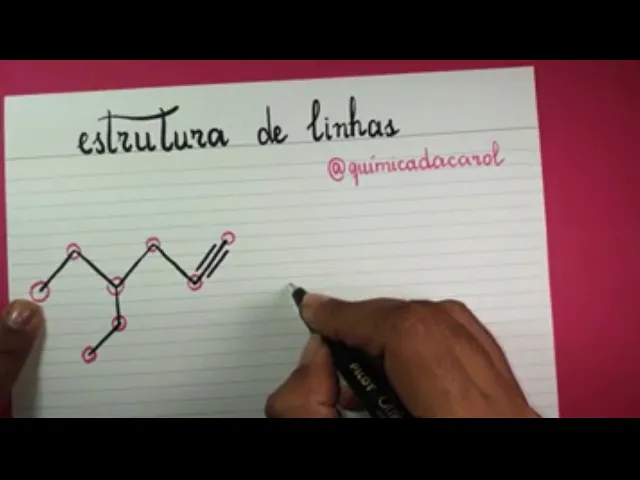 estrutura de linhas
@quimicadacarol
PILOT